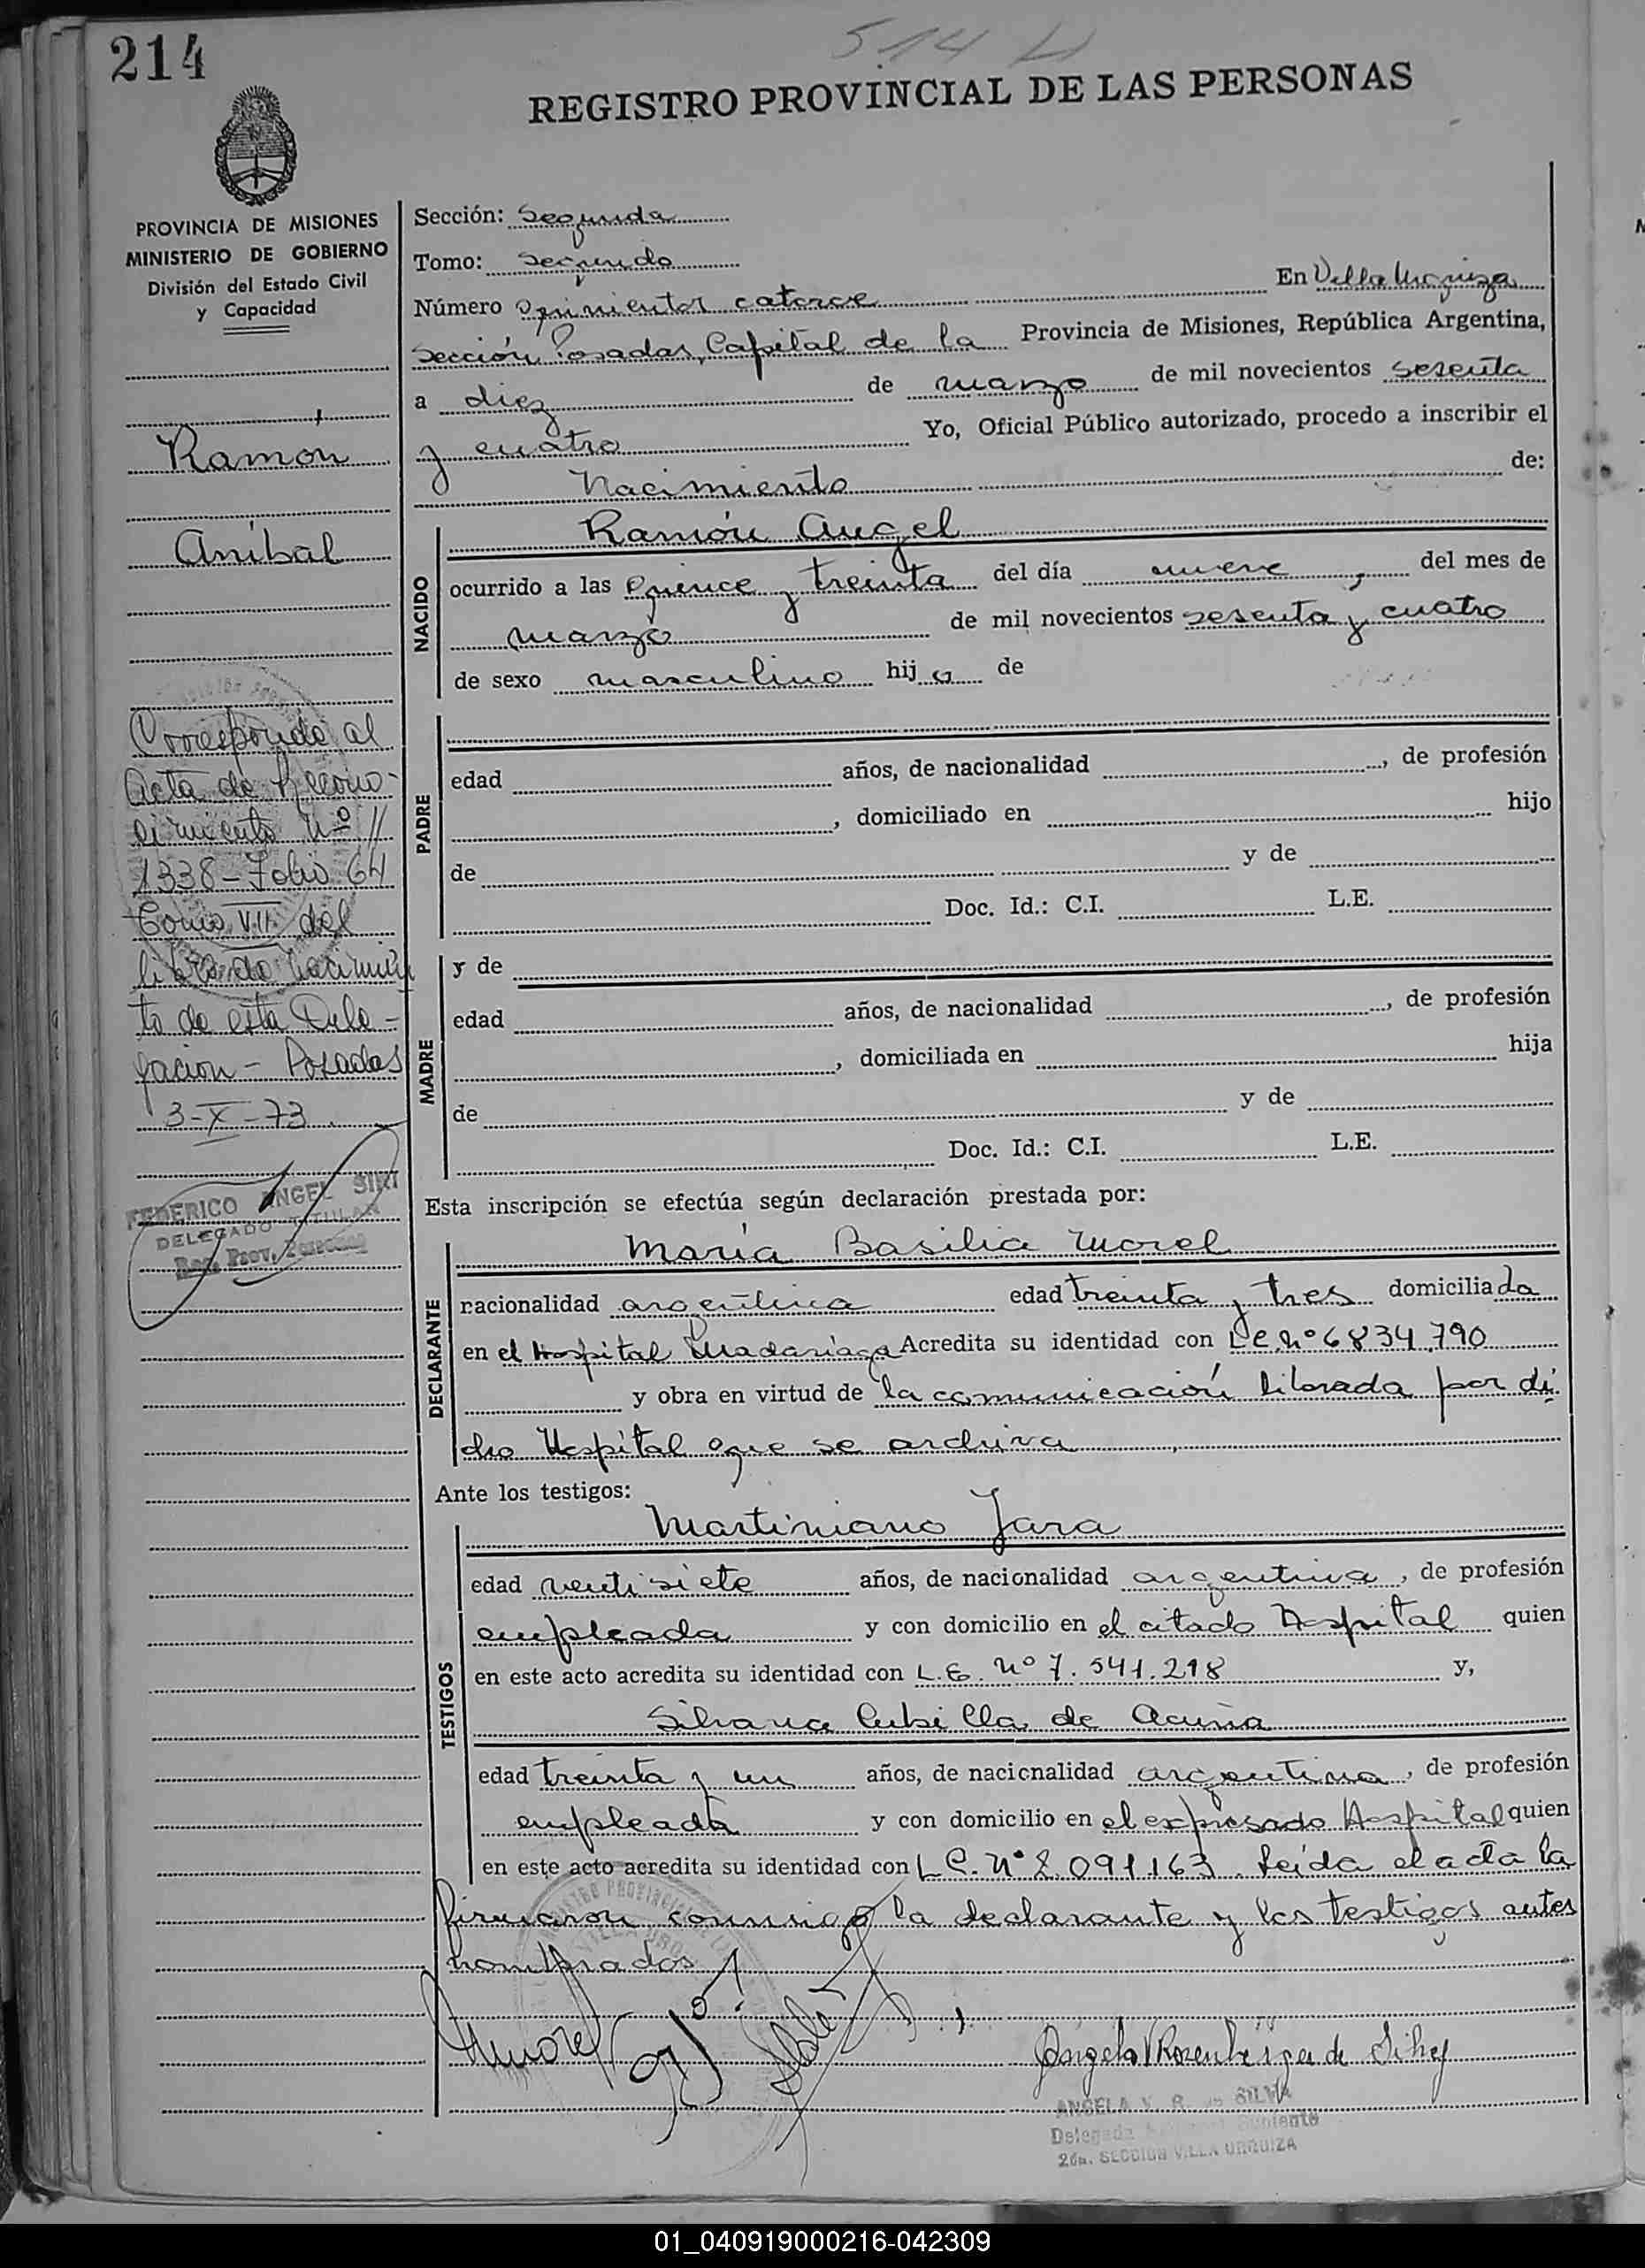 214
514 U
REGISTRO PROVINCIAL DE LAS PERSONAS
PROVINCIA DE MISIONES
MINISTERIO DE GOBIERNO
División del Estado Civil
y Capacidad
Ramón
Aníbal
Corresponde al
Acta de Recono-
cimiento Nº //
1338 - Folio 64
Tomo VII del
libro de nacimien
to de esta Dele-
gación - Posadas
3-X-73
FEDERICO ANGEL SIRI
DELEGADO TITULAR
Reg. Prov. Personas
Sección: Segunda
Tomo: Segundo
Número quinientos catorce En Villa Urquiza
Sección Posadas, Capital de la Provincia de Misiones, República Argentina,
a diez de marzo de mil novecientos sesenta
y cuatro Yo, Oficial Público autorizado, procedo a inscribir el
Nacimiento de:
NACIDO
Ramón Angel
ocurrido a las quince y treinta del día nueve, del mes de
marzo de mil novecientos sesenta y cuatro
de sexo masculino hijo de
PADRE
edad años, de nacionalidad , de profesión
, domiciliado en hijo
de y de
Doc. Id.: C.I. L.E.
MADRE
y de
edad años, de nacionalidad , de profesión
, domiciliada en hija
de y de
Doc. Id.: C.I. L.E.
Esta inscripción se efectúa según declaración prestada por:
DECLARANTE
María Basilia Morel
nacionalidad argentina edad treinta y tres domiciliada
en el Hospital Madariaga Acredita su identidad con L.C. Nº 6834.790
y obra en virtud de la comunicación librada por di
cho Hospital que se archiva
Ante los testigos:
TESTIGOS
Martiniano Jara
edad veintisiete años, de nacionalidad argentina, de profesión
empleada y con domicilio en el citado Hospital quien
en este acto acredita su identidad con L.E. Nº 7.541.218 y,
Silvana Cubilla de Acuña
edad treinta y un años, de nacionalidad argentina, de profesión
empleada y con domicilio en el expresado Hospital quien
en este acto acredita su identidad con L.C. Nº 2.091.163. Leída el acta la
firmaron conmigo la declarante y los testigos antes
nombrados
Morel
Angela V Rosenberger de Silva
ANGELA V. R. DE SILVA
Delegada Suplente
2da. SECCION VILLA URQUIZA
01_040919000216-042309